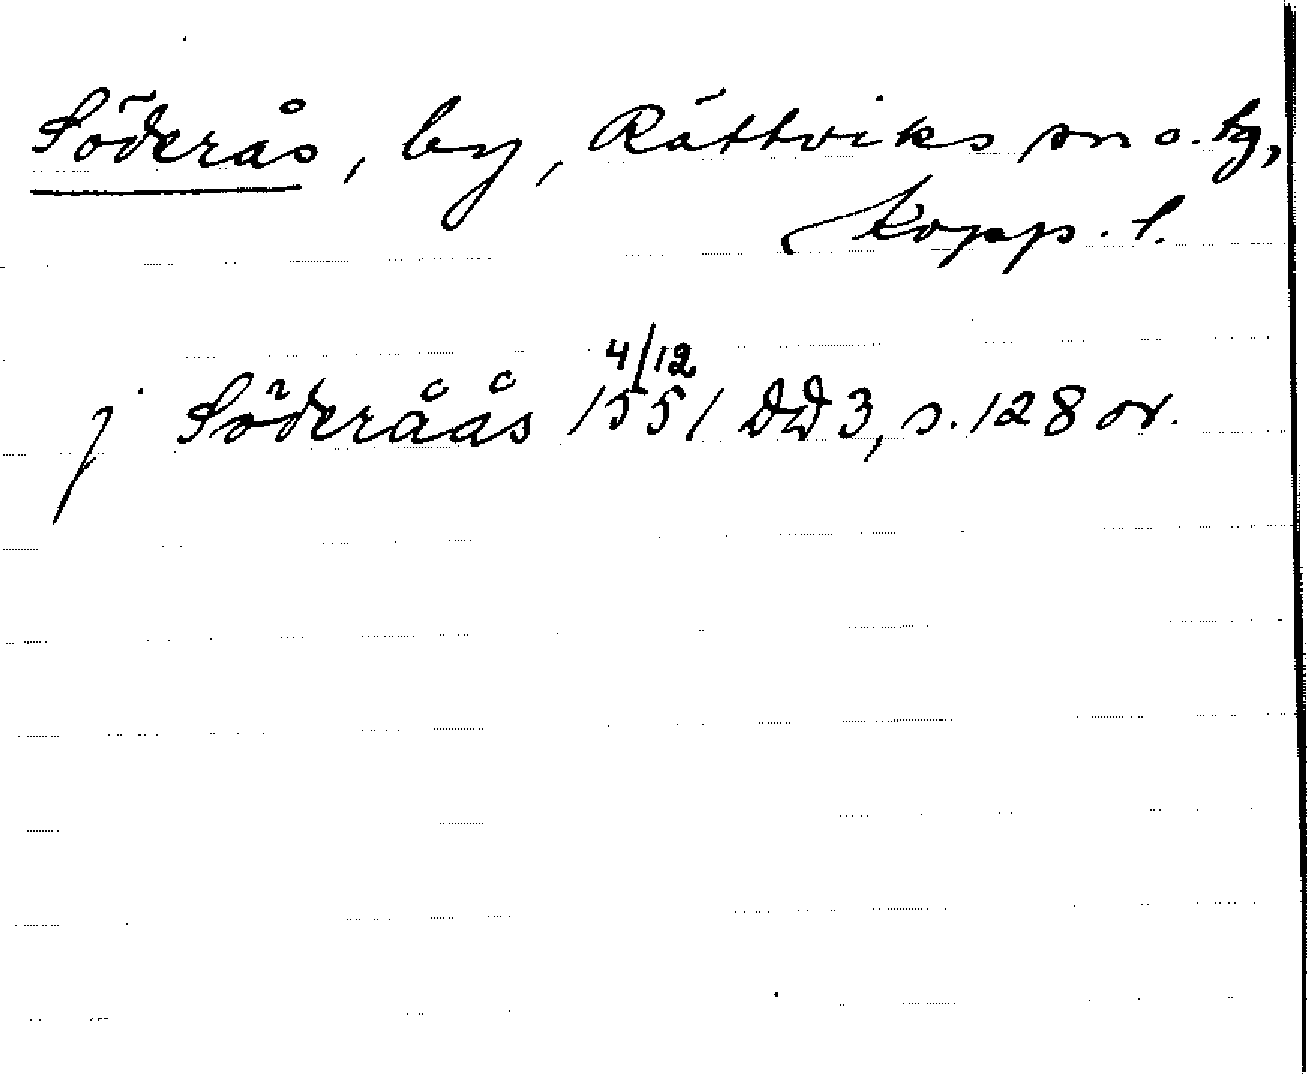 Söderås, by, Rättviks sn o. tg,
Kopp. l.
j Söderåås 4/12 1551 DD 3, s. 128 or.